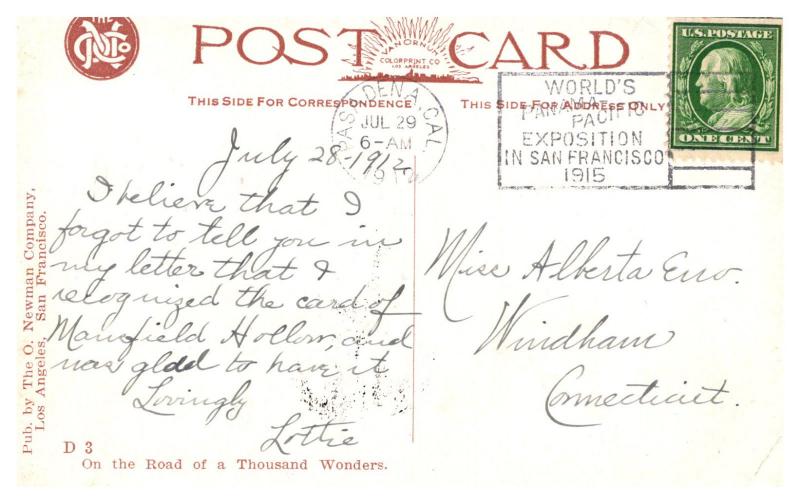 THE
N Co
POST CARD
VAN ORNUM
COLORPRINT CO.
LOS ANGELES
THIS SIDE FOR CORRESPONDENCE
THIS SIDE FOR ADDRESS ONLY
PASADENA, CAL.
JUL 29
6-AM
WORLD'S
PANAMA-
PACIFIC
EXPOSITION
IN SAN FRANCISCO
1915
U.S. POSTAGE
ONE CENT
July 28-1912
I believe that I
forgot to tell you in
my letter that I
recognized the card of
Mansfield Hollow, and
was glad to have it
Lovingly
Lottie
Miss Alberta
Windham
Connecticut.
Pub. by The O. Newman Company,
Los Angeles, San Francisco.
D 3
On the Road of a Thousand Wonders.